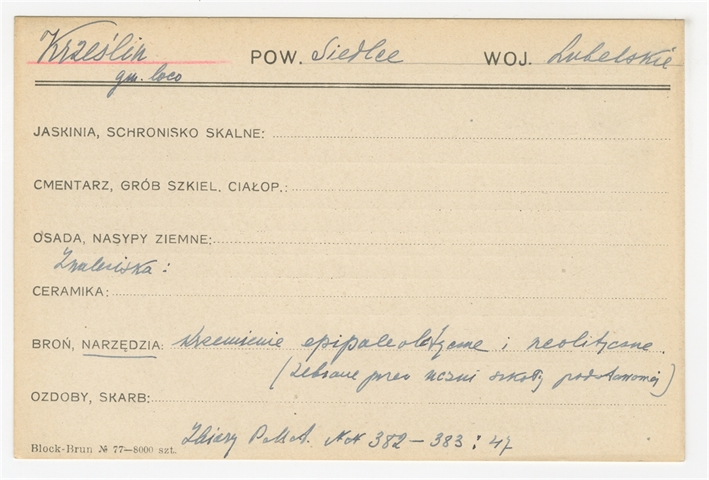 Krześlin POW. Siedlce WOJ. Lubelskie
gm. loco
JASKINIA, SCHRONISKO SKALNE:
CMENTARZ, GRÓB SZKIEL. CIAŁOP.:
OSADA, NASYPY ZIEMNE:
Znaleziska:
CERAMIKA:
BROŃ, NARZĘDZIA: krzemienie epipaleolityczne i neolityczne
(zebrane przez uczni szkoły podstawowej)
OZDOBY, SKARB:
Zbiory P.M.A. NN 382-383:47
Block-Brun № 77—8000 szt.